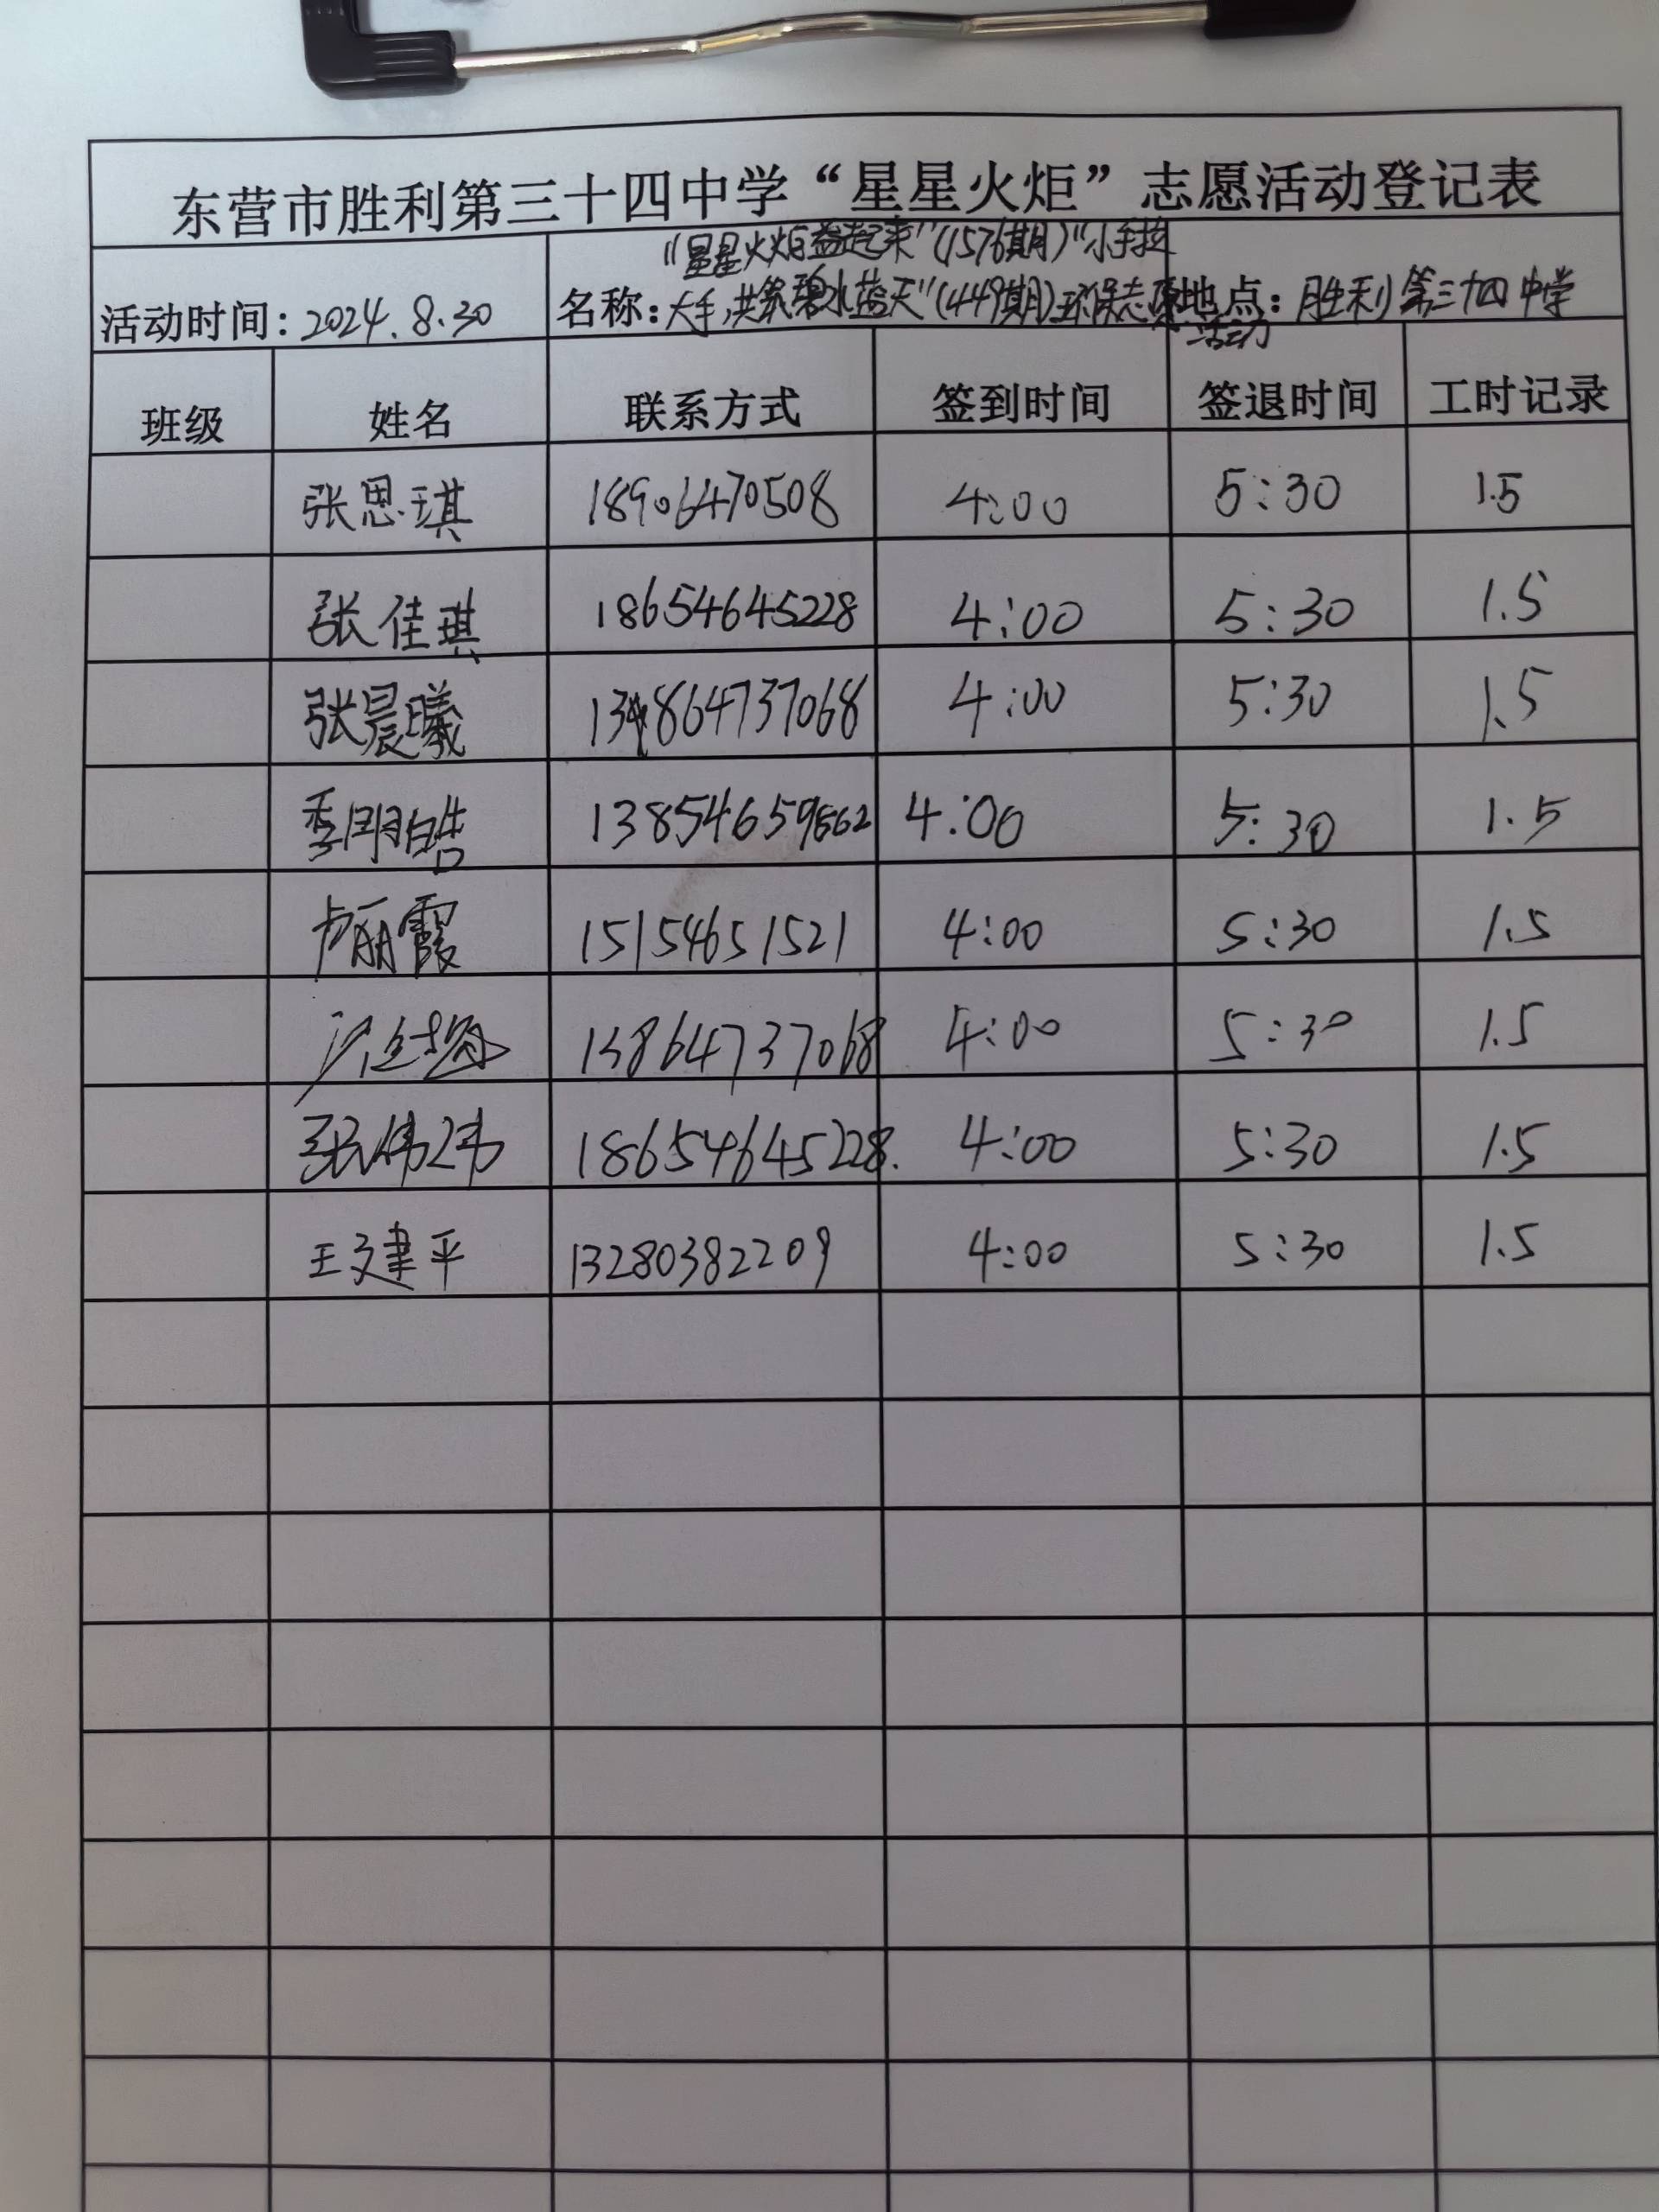 东营市胜利第三十四中学“星星火炬”志愿活动登记表
活动时间：2024.8.30
名称：“星星火炬益起来”(1576期)“小手拉
大手，共筑碧水蓝天”(449期)环保志愿
活动
地点：胜利第三十四中学
班级 姓名 联系方式 签到时间 签退时间 工时记录
张思琪 18906470508 4:00 5:30 1.5
张佳琪 18654645228 4:00 5:30 1.5
张晨曦 13864737068 4:00 5:30 1.5
季玥皓 13854659862 4:00 5:30 1.5
卢丽霞 15154651521 4:00 5:30 1.5
13864737068 4:00 5:30 1.5
张伟伟 18654645228. 4:00 5:30 1.5
王建平 13280382209 4:00 5:30 1.5